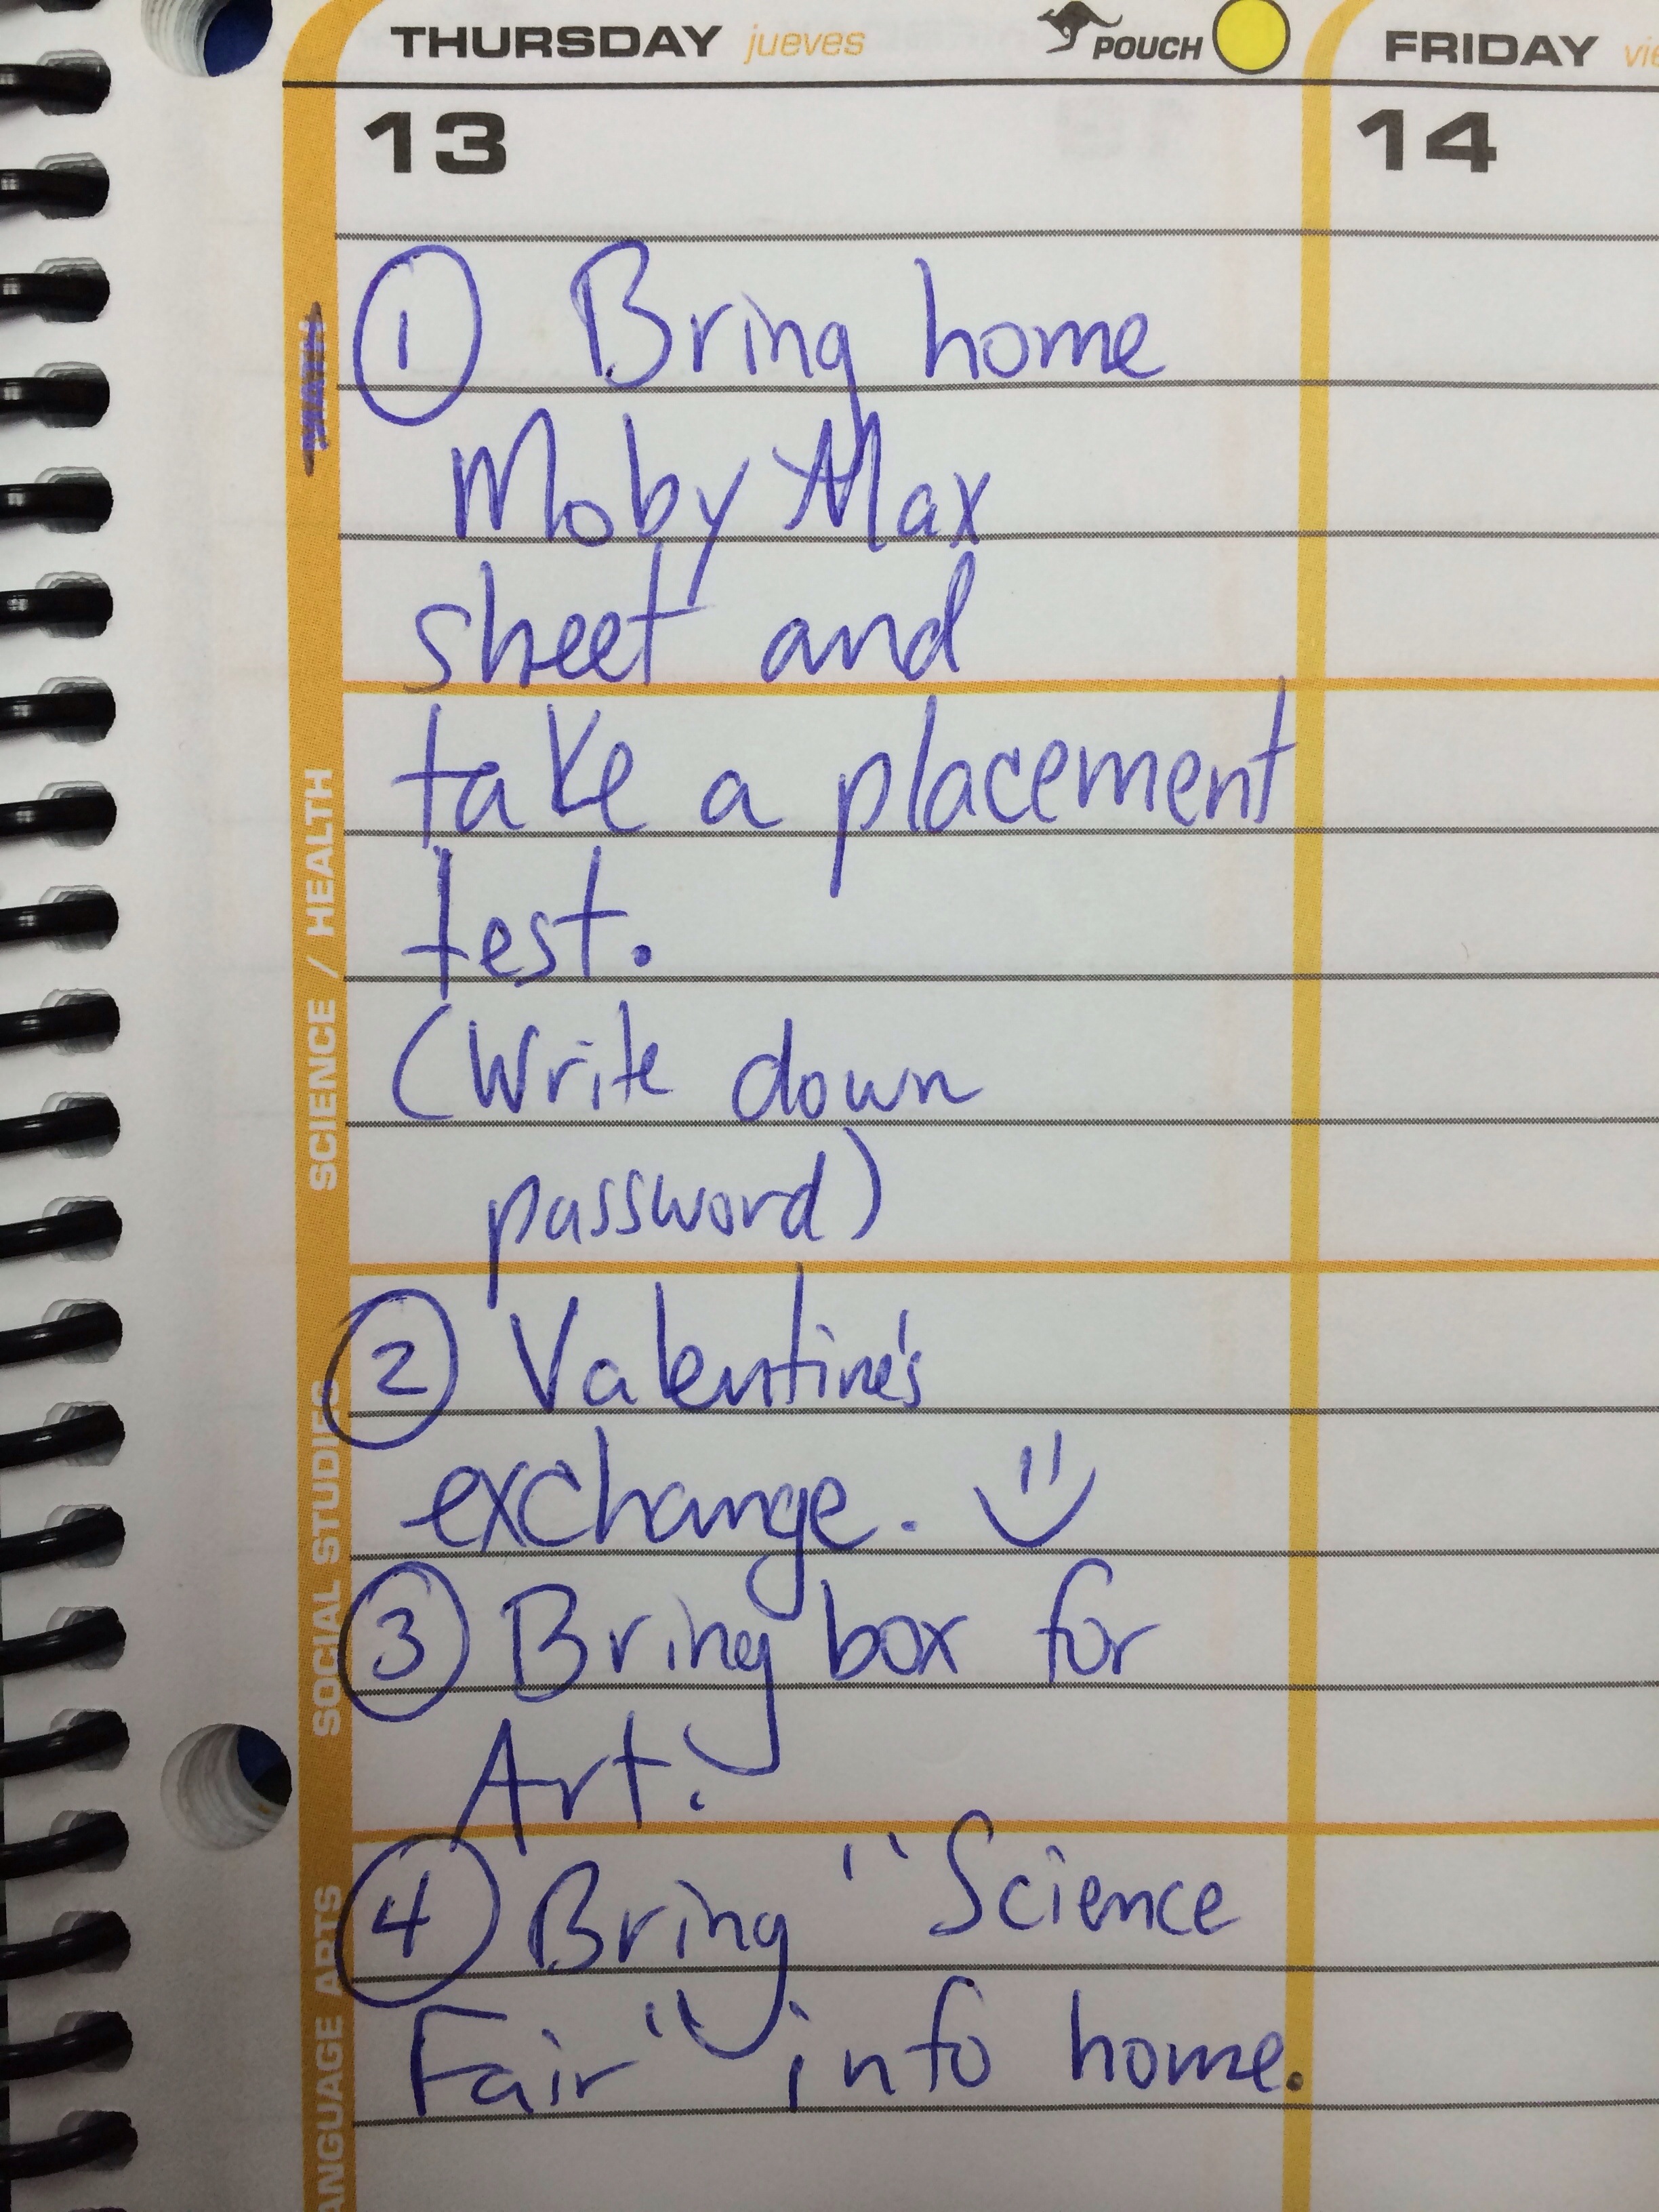 THURSDAY jueves POUCH FRIDAY vie
13 14
MATH
① Bring home
Moby Max
sheet and
take a placement
test.
(Write down
password)
SCIENCE / HEALTH
② Valentine's
exchange. 
③ Bring box for
Art.
SOCIAL STUDIES
④ Bring "Science
Fair" info home.
ANGUAGE ARTS